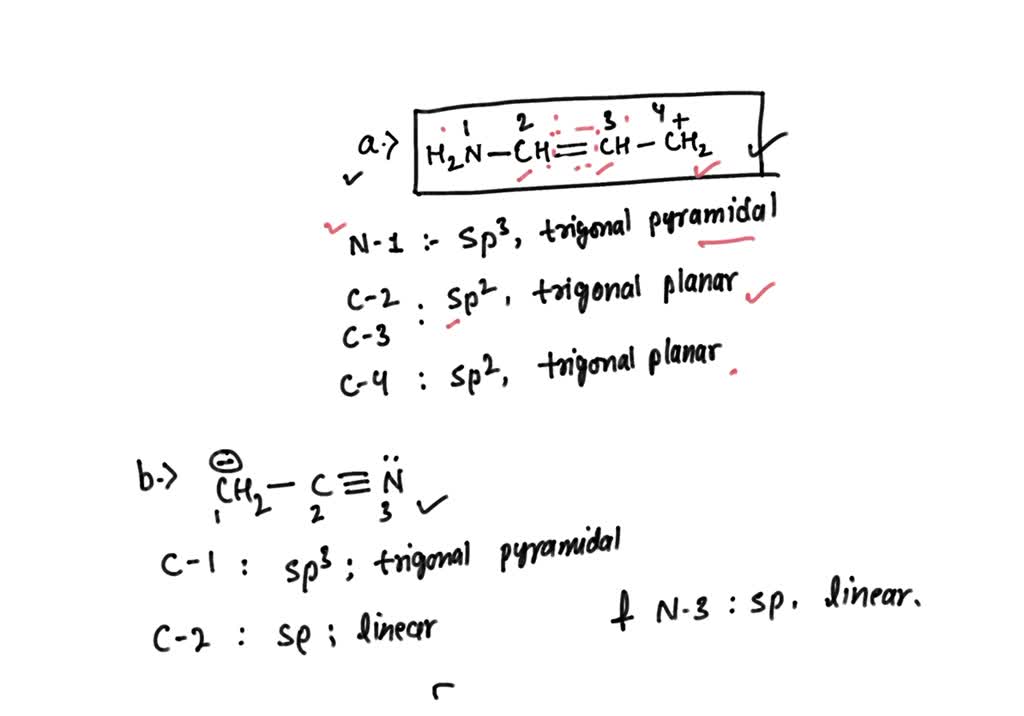 1 2 3 4 +
a.> H₂N–CH=CH–CH₂
N-1 :- Sp³, trigonal pyramidal
C-2
C-3 : Sp², trigonal planar
C-4 : Sp², trigonal planar.
⊖
b.> CH₂–C≡N̈
1 2 3
C-1 : Sp³; trigonal pyramidal
C-2 : Sp ; linear
N-3 : Sp. linear.